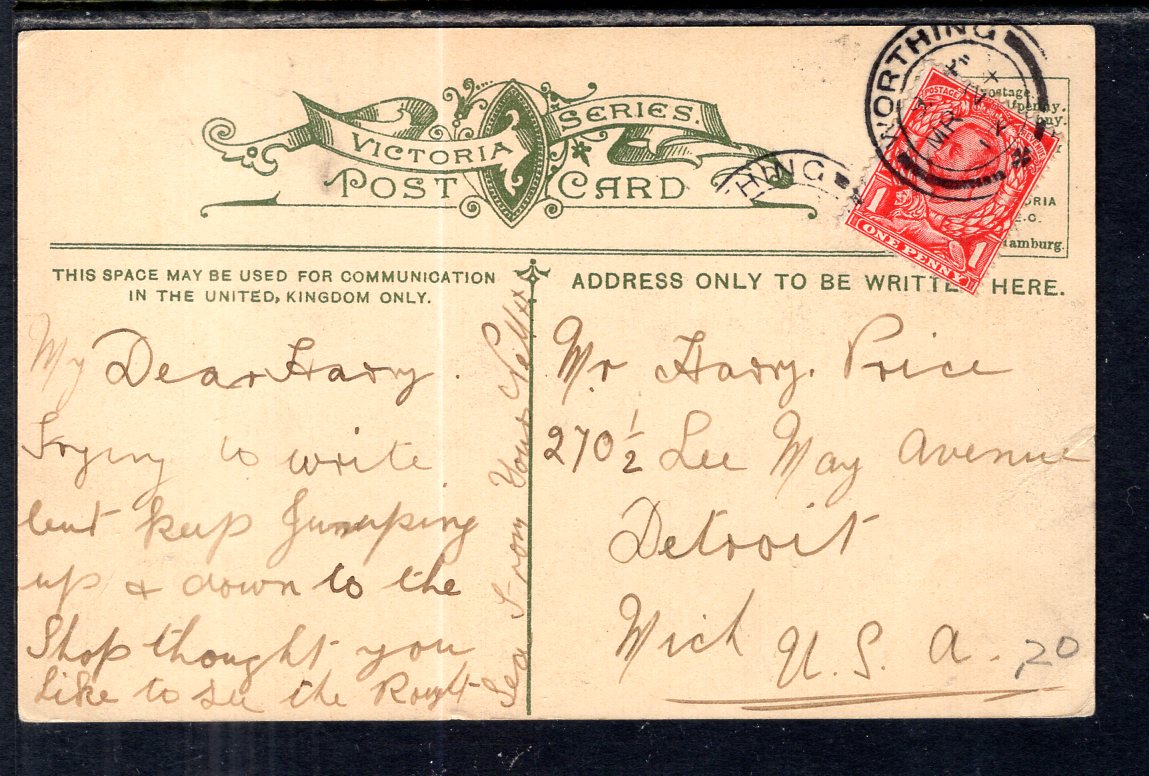 WORTHING
HING
MR
POSTAGE
REVENUE
1
1
ONE PENNY
Postage.
lfpenny.
ny.
ORIA
E.C.
amburg.
VICTORIA SERIES.
POST CARD
THIS SPACE MAY BE USED FOR COMMUNICATION
IN THE UNITED, KINGDOM ONLY.
My Dear Harry.
Trying to write
but keep Jumping
up & down to the
Shop thought you
Like to see the Rough
Sea from Your
ADDRESS ONLY TO BE WRITTE HERE.
Mr Harry. Price
270 1/2 Lee May Avenue
Detroit
Mich U. S. A.
20